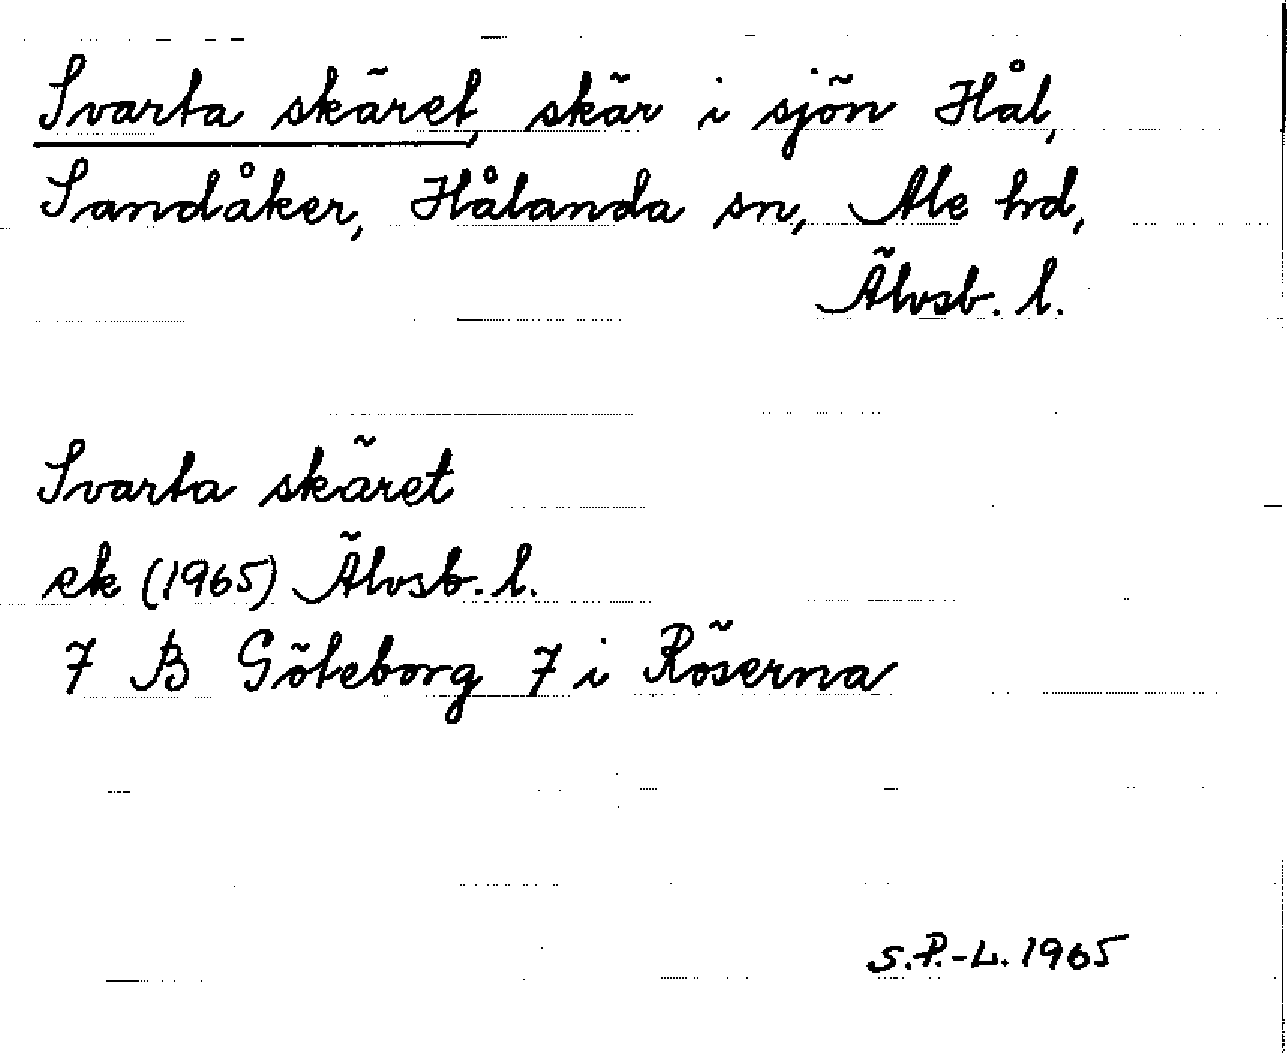 Svarta skäret, skär i sjön Hål,
Sandåker, Hålanda sn, Ale hd,
Älvsb. l.
Svarta skäret
ek (1965) Älvsb. l.
7 B Göteborg 7 i Röserna
S.P.-L. 1965